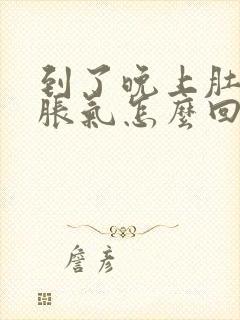 到了晚上肚
脹氣怎麼回
詹彥